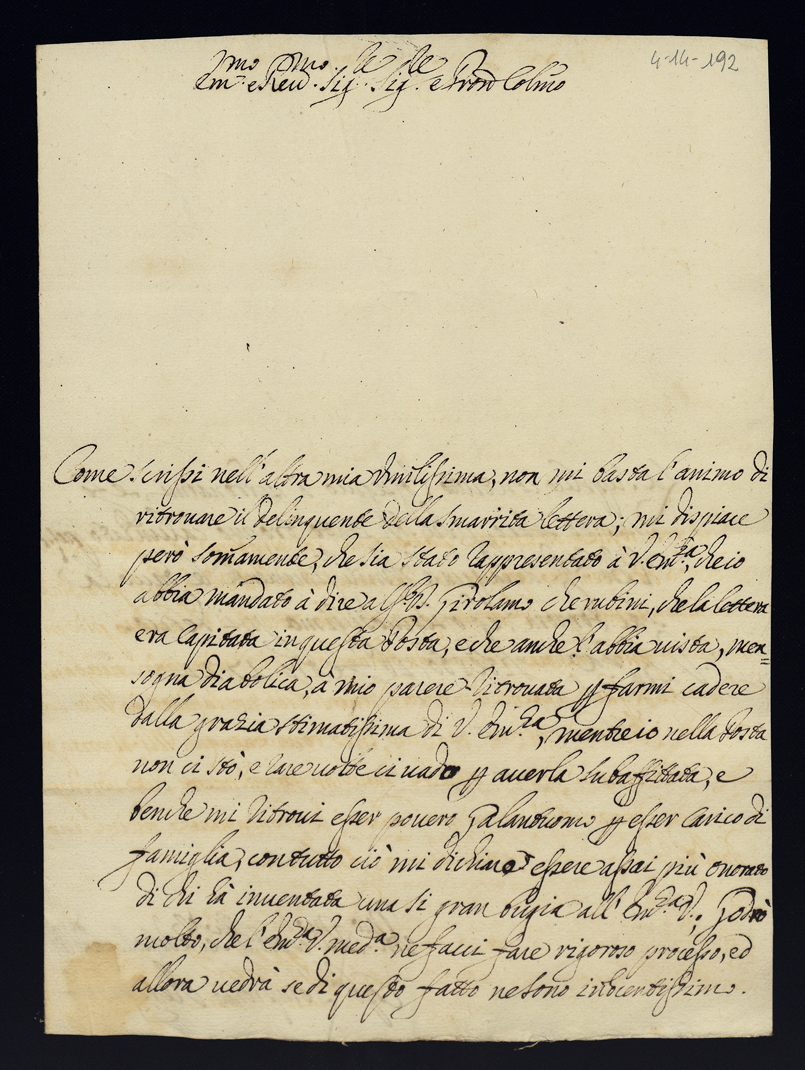 4-14-192
Em.mo e Reu.mo Sig.re Sig.re e Pron Colmo
Come scrissi nell'altra mia Vmilissima, non mi basta l'animo di
ritrouare il delinquente della smarrita lettera; mi dispiace
però sommamente, che sia stato rappresentato à V. Em.za, che io
abbia mandato à dire al Sig. Girolamo Cherubini, che la lettera
era Capitata in questa Posta, e che anche l'abbia uista, men=
sogna diabolica, à mio parere ritrouata p farmi cadere
dalla grazia stimatissima di V. Em.za, mentre io nella Posta
non ci stò, e rare uolte ci uado p auerla subaffittata, e
benche mi ritroui esser pouero Galantuomo p esser Carico di
famiglia, con tutto ciò mi dichiaro essere assai più onorato
di chi hà inuentata una si gran bugia all'Em.za V., Godrò
molto, che l'Em.za V. med.a ne facci fare rigoroso processo, ed
allora uedrà se di questo fatto ne sono innocentissimo.